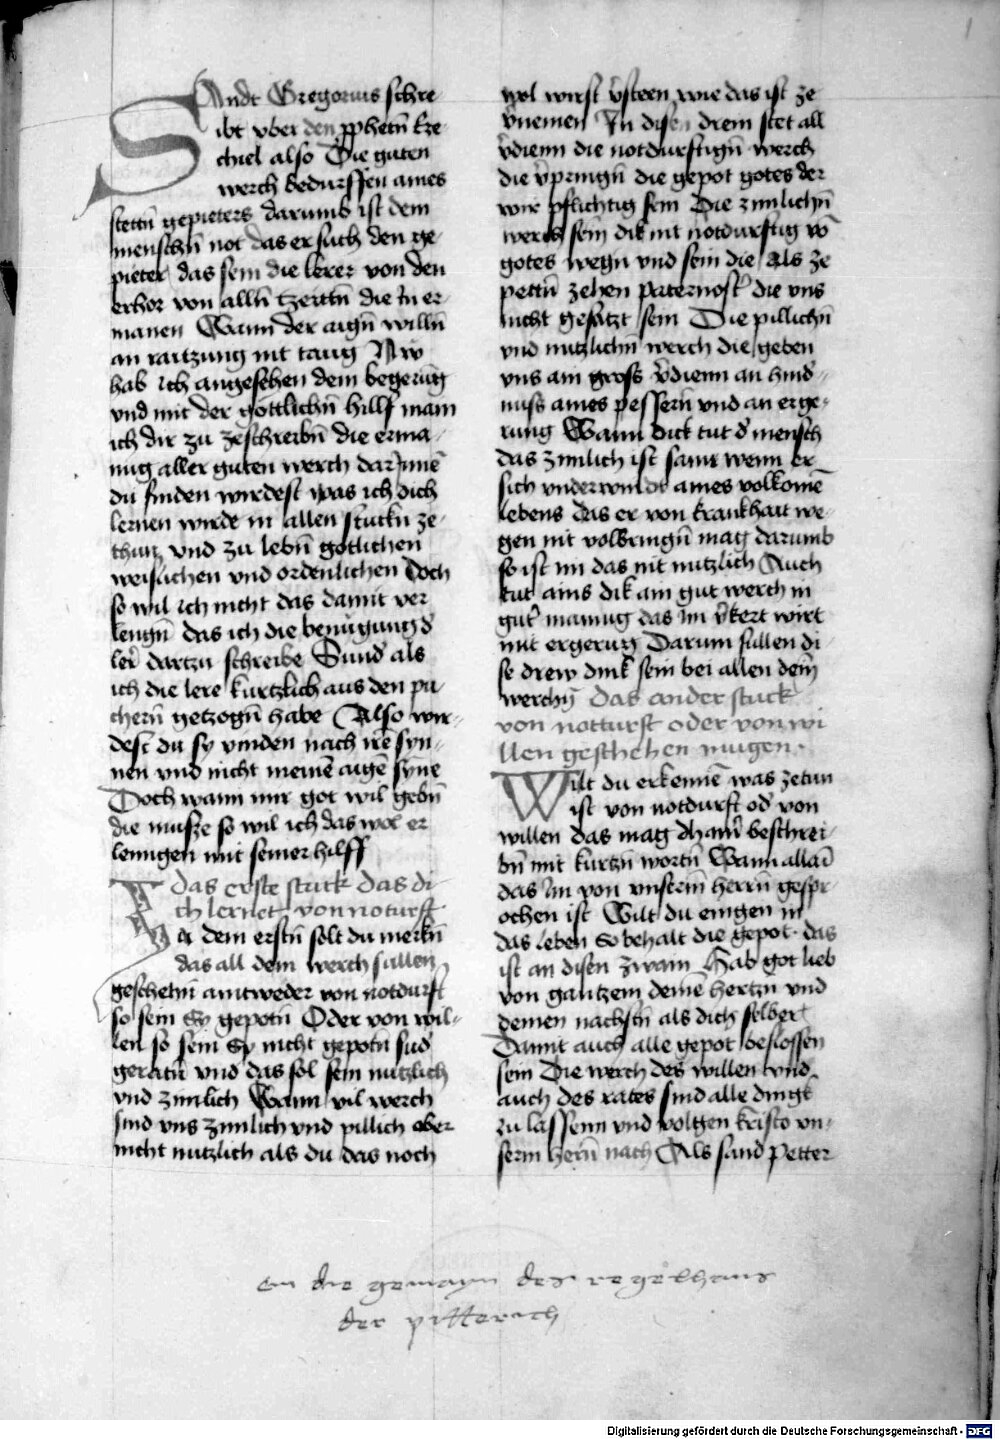 1
SAndt Gregorius schre
ibt vber den pphetñ Eze
chiel also Die guten
werch bedurffen aines
stetñ gepieters darumb ist dem
menschñ not das er such den ge
pieter das sein die lerer von den
erhor von allñ tzeittñ die in er
manen Wann der aigñ willñ
an raitzung nit taug Nw
hab ich angesehen dein begerūg
vnd mit der gottlichñ hillf main
ich dir zu zeschreibñ die erma
nug aller guten werch dar Inne
du finden wirdest was ich dich
lernen wirde in allen stuckñ ze
thun vnd zu lebñ gotlichen
weislichen vnd ordenlichen Doch
so wil ich nicht das damit ver
lengñ das ich die benugung d̕
ler̕ dartzu schreibe Sund̕ als
ich die lere kurtzlich aus den pu
chern getzogñ habe Also wir
dest du sy vinden nach irē syn
nen vnd nicht meinē aigē synne
Doch wann mir got wil gebñ
die musze so wil ich das wol er
lengen mit seiner hilff
das erste stuck das di
ch lernet von noturft
Zu dem erstñ solt du merkñ
das all dein werch sullen
geschehñ aintweder von notdurft
so sein Sy gepotñ Oder von wil
len so sein Sy nicht gepotñ sud̕
geratñ vnd das sol sein nutzlich
vnd zimlich Wann vil werch
sind vns zimlich vnd pillich aber
nicht nutzlich als du das noch
wol wirst v̕steen wie das ist ze
v̕nemen In disen drein stet all
v̕dienn die notdurftigñ werch
die v̕pringñ die gepot gotes der
wir pflichtig sein Die zimlichñ
werch sein dik nit notdurftig vō
gotes wegñ vnd sein die als ze
pettñ zehen paternost̕ die vns
nicht gesatzt sein Die pillichñ
vnd nutzlichñ werch die geben
vns ain gross v̕dienn an hind̕
nuss aines pessern vnd an erge
rung Wann dick tut d̕ mensch
das zimlich ist sam wenn er
sich vnderwindt aines volkomē
lebens das er von krankhait we
gen nit volbringñ mag darumb
so ist im das nit nutzlich Auch
tut ains dik ain gut werch in
gut̕ mainug das Im v̕kert wirt
mit ergerug Darum sullen di
se drew dink sein bei allen dein
werchñ das ander stuck
von notturft oder von wi
llen geschehen mugen
Wilt du erkennē was zetun
ist von notdurft od̕ von
willen das mag dir beschrei
bñ mit kurtzñ wortñ Wann allain
das Im von vnserm herrñ gespr
ochen ist Wilt du eingen in
das leben So behalt die gepot das
ist an disen zwain Hab got lieb
von gantzem deinē hertzñ vnd
deinen nachstñ als dich selber
Damit auch alle gepot beslossen
sein Die werch des willen vnd
auch des rates sind alle dingk
zu lassenn vnd volgen kristo vn
serm herñ nach Als sand Petter
in die gemayn des regelhaus
der pitterich
Digitalisierung gefördert durch die Deutsche Forschungsgemeinschaft - DFG